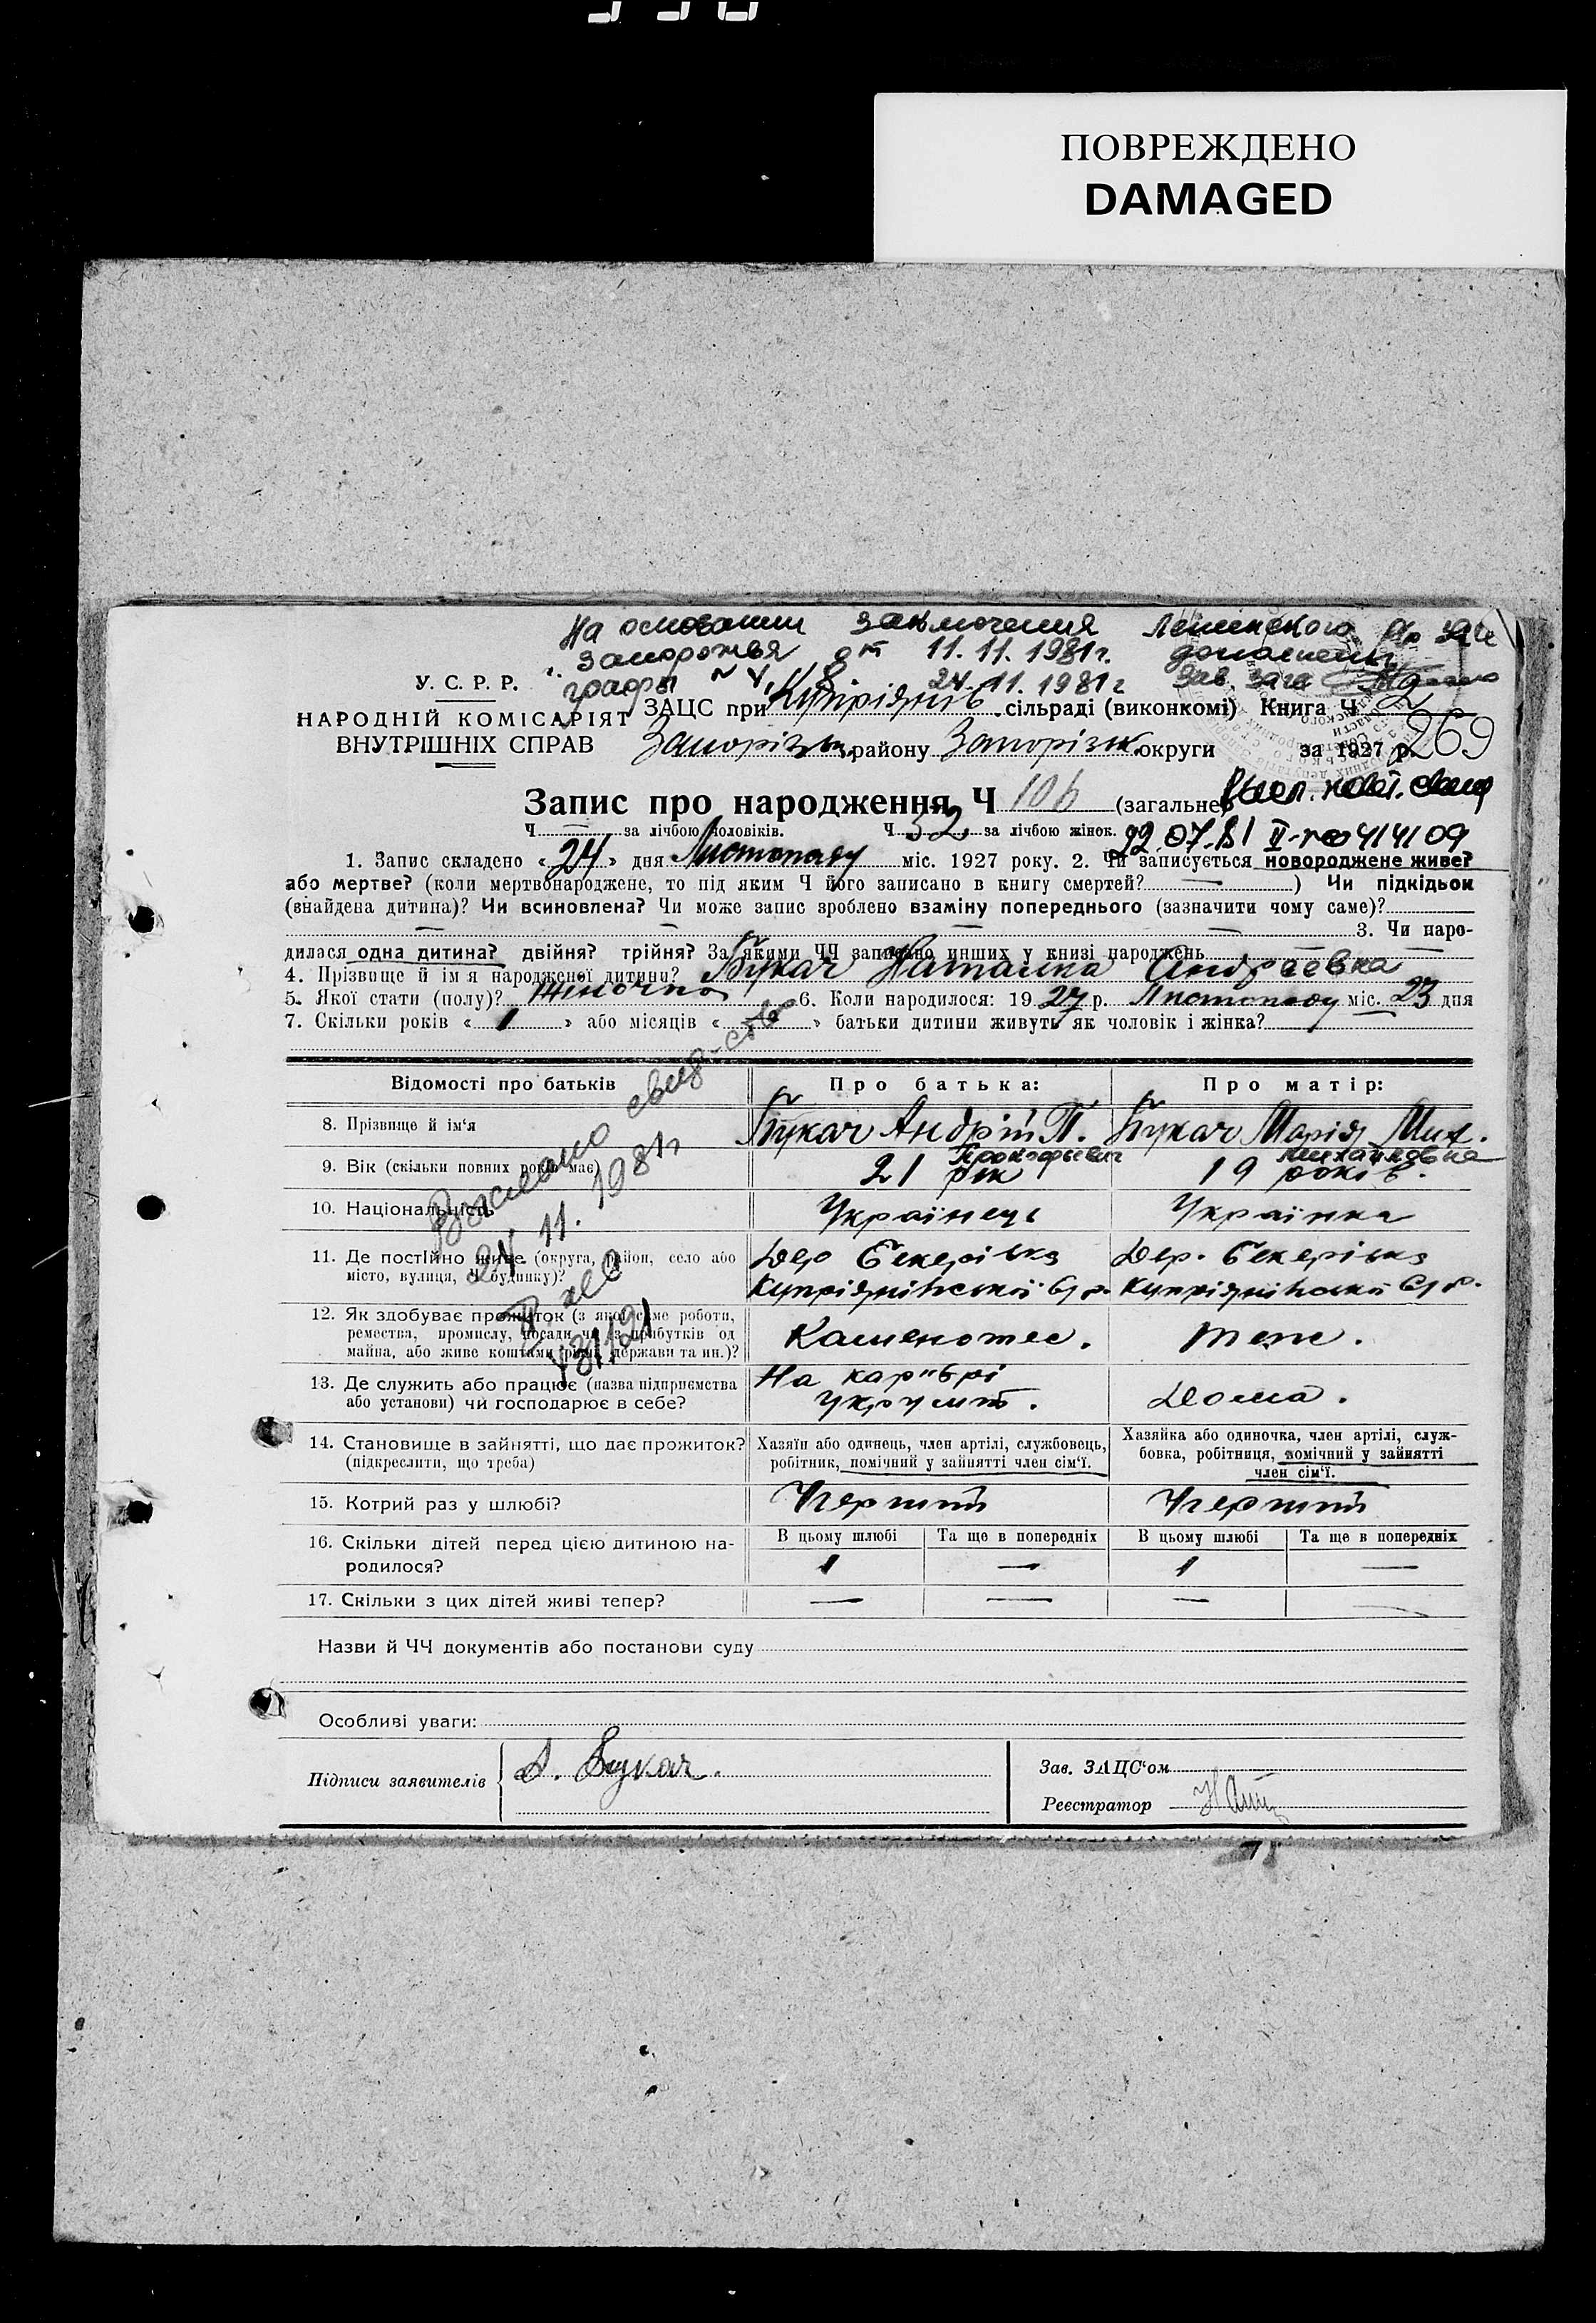 ПОВРЕЖДЕНО
DAMAGED
На основании заключения Ленинского
Запорожья от 11.11.1981г.
графы 24.11.1981г Зав. загса
У. С. Р. Р.
НАРОДНІЙ КОМІСАРІЯТ
ВНУТРІШНІХ СПРАВ
ЗАЦС при сільраді (виконкомі) Книга Ч 2
району округи за 1927 р. 269
Запис про народження Ч 106 (загальне)
Ч — за лічбою чоловіків. Ч 52 за лічбою жінок.
22.07.81 II-
1. Запис складено « 24 » дня Листопаду міс. 1927 року. 2. Чи записується новороджене живе?
або мертве? (коли мертвонароджене, то під яким Ч його записано в книгу смертей? — ) Чи підкідьок
(внайдена дитина)? Чи всиновлена? Чи може запис зроблено взаміну попереднього (зазначити чому саме)?
— — — 3. Чи наро-
дилася одна дитина? двійня? трійня? За якими ЧЧ записано инших у книзі народжень
4. Прізвище й ім'я народженої дитини? Букач Наталка Андреевна
5. Якої стати (полу)? Жіноча 6. Коли народилося: 1927 р. Листопаду міс. 23 дня
7. Скільки років « 1 » або місяців « — » батьки дитини живуть як чоловік і жінка? —
Відомості про батьків Про батька: Про матір:
8. Прізвище й ім'я Букач Андрій П. Букач Марія Мих.
Прокофьевич Михайловна
9. Вік (скільки повних років має) 21 рік 19 років.
10. Національність Українець Українка
11. Де постійно живе (округа, район, село або
місто, вулиця, Ч будинку)?
12. Як здобуває прожиток (з якої саме роботи,
ремества, промислу, посади чи з прибутків од
майна, або живе коштами рідні, держави та ин.)? Каменотес. теж.
13. Де служить або працює (назва підприємства
або установи) чи господарює в себе? На кар'єрі Дома.
14. Становище в зайнятті, що дає прожиток?
(підкреслити, що треба)
Хазяїн або одинець, член артілі, службовець,
робітник, помічний у зайнятті член сім'ї.
Хазяйка або одиночка, член артілі, служ-
бовка, робітниця, помічний у зайнятті
член сім'ї.
15. Котрий раз у шлюбі? Перший Перший
В цьому шлюбі Та ще в попередніх В цьому шлюбі Та ще в попередніх
16. Скільки дітей перед цією дитиною на-
родилося? 1 — 1 —
17. Скільки з цих дітей живі тепер? — — — —
Выслано свид-ство
24.11.1981г
Назви й ЧЧ документів або постанови суду
Особливі уваги:
Підписи заявителів А. Букач.
Зав. ЗАЦС'ом
Реєстратор